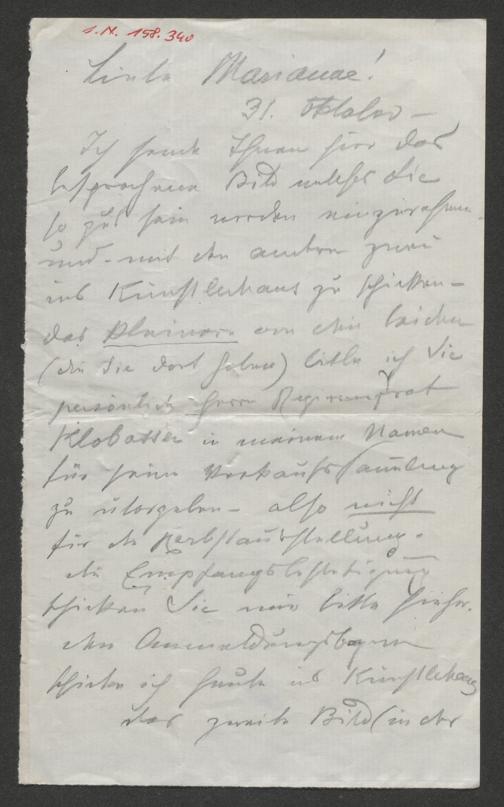 I.N. 158.340
Liebe Marianne!
31. Oktober –
Ich sende Ihnen hier das
besprochene Bild welches Sie
so gut sein werden einzurahmen
und mit den andern zwei
ins Künstlerhaus zu schicken –
das kleinere von den beiden
(die Sie dort haben) bitte ich Sie
persönlich Herrn Regierungsrat
in meinem Namen
für seine Verkaufssammlung
zu übergeben – also nicht
für die Herbstausstellung.
die Empfangsbestätigung
schicken Sie mir bitte hieher.
den Anmeldungsbogen
schicke ich heute ins Künstlerhaus
das zweite Bild (in der